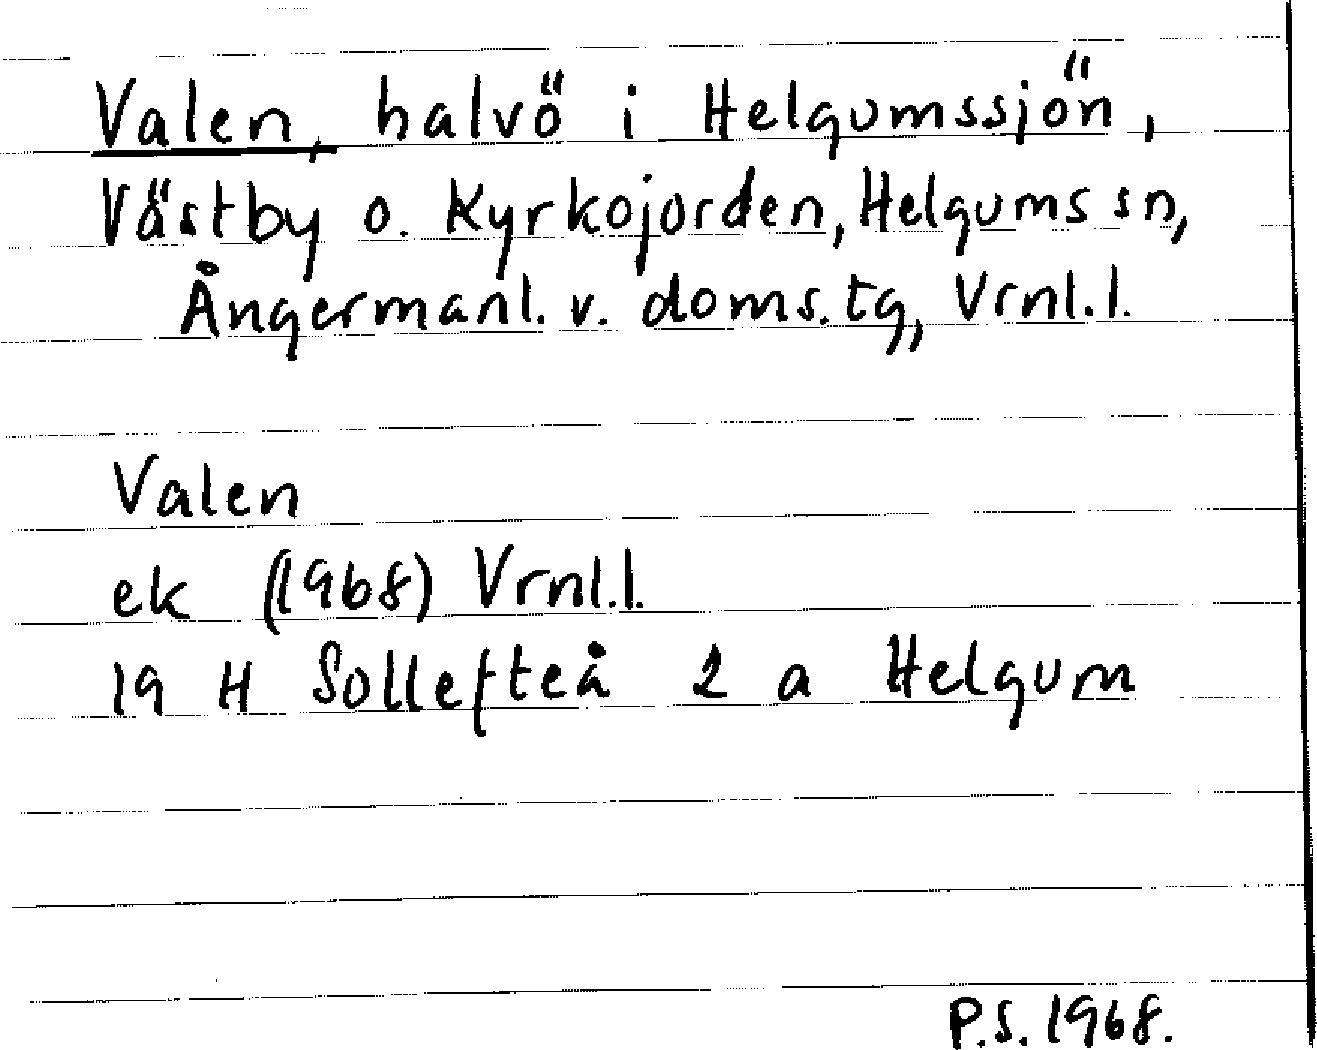 Valen, halvö i Helgumssjön,
Västby o. Kyrkojorden, Helgums sn,
Ångermanl. v. doms.tg, Vrnl.l.
Valen
ek (1968) Vrnl.l.
19 H Sollefteå 2 a Helgum
P.S. 1968.